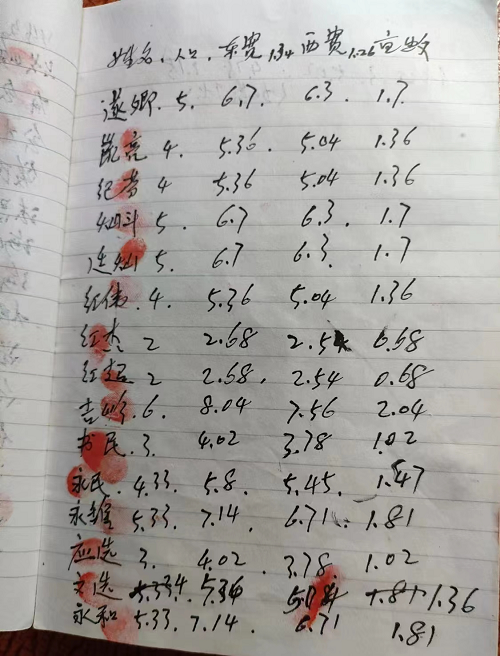 姓名.人口.东宽1.34西宽1.26亩数
遂卿.5.6.7.6.3.1.7
凯亮4.5.36.5.04 1.36
纪者4 5.36 5.04 1.36
灿科5.6.7 6.3.1.7
连灿5.6.7 6.3.1.7
红伟.4.5.36 5.04 1.36
红杰2 2.68 2.54 0.68
红超2 2.68.2.54 0.68
吉岭.6.8.04 7.56 2.04
书民.3.4.02 3.78 1.02
永民.4.33.5.8.5.45.1.47
永锋5.33.7.14.6.71.1.81
应选3.4.02.3.78 1.02
文选 4.5.36 5.04 1.36
永和5.33.7.14.6.71 1.81